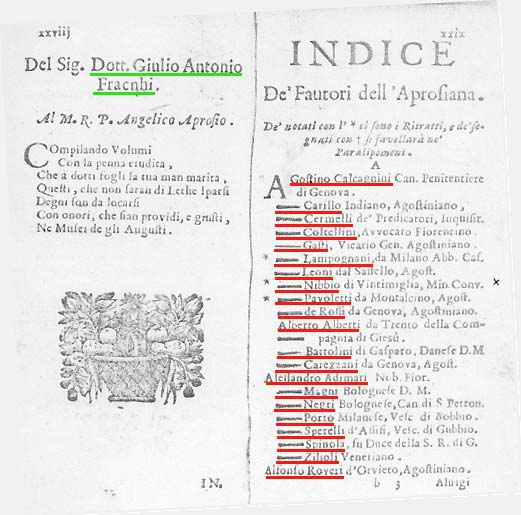 xxviij
Del Sig. Dott. Giulio Antonio
Fracnhi.
Al M. R. P. Angelico Aprosio.
Compilando Volumi
Con la penna erudita,
Che a dotti fogli la tua man marita,
Questi, che non saran di Lethe sparsi
Degni son da locarsi
Con onori, che sian providi, e giusti,
Ne Musei de gli Augusti.
IN.
xxix
INDICE
De' Fautori dell'Aprosiana.
De' notati con l' * si sono i Ritratti, e de' segnati con † si favellarà ne'
Paralipomeni.
A
Agostino Calcagnini Can. Penitentiere
di Genova.
—— Carillo Indiano, Agostiniano,
—— Cermelli de' Predicatori, Inquisit.
—— Coltellini, Avvocato Fiorentino
—— Gasti, Vicario Gen. Agostiniano.
* —— Lampognani, da Milano Abb. Cas.
—— Leoni dal Sassello, Agost.
* —— Nibbio di Vintimiglia, Min. Conv.
* —— Pavoletti da Montalcino, Agost.
—— de Rossi da Genova, Agostiniano.
Alberto Alberti da Trento della Compagnia di Giesù.
—— Bartolini di Gasparo, Danese D.M
—— Carezzani da Genova, Agost.
Alessandro Adimari Nob. Fior.
—— Magni Bolognese D. M.
—— Negri Bolognese, Can. di S Petron.
—— Porto Milanese, Vesc. di Bobbio.
—— Sperelli d'Assisi, Vesc. di Gubbio.
—— Spinola, su Duce della S. R. di G.
—— Zilioli Venetiano.
Alfonso Roveri d'Orvieto, Agostiniano.
b 3 Aluigi